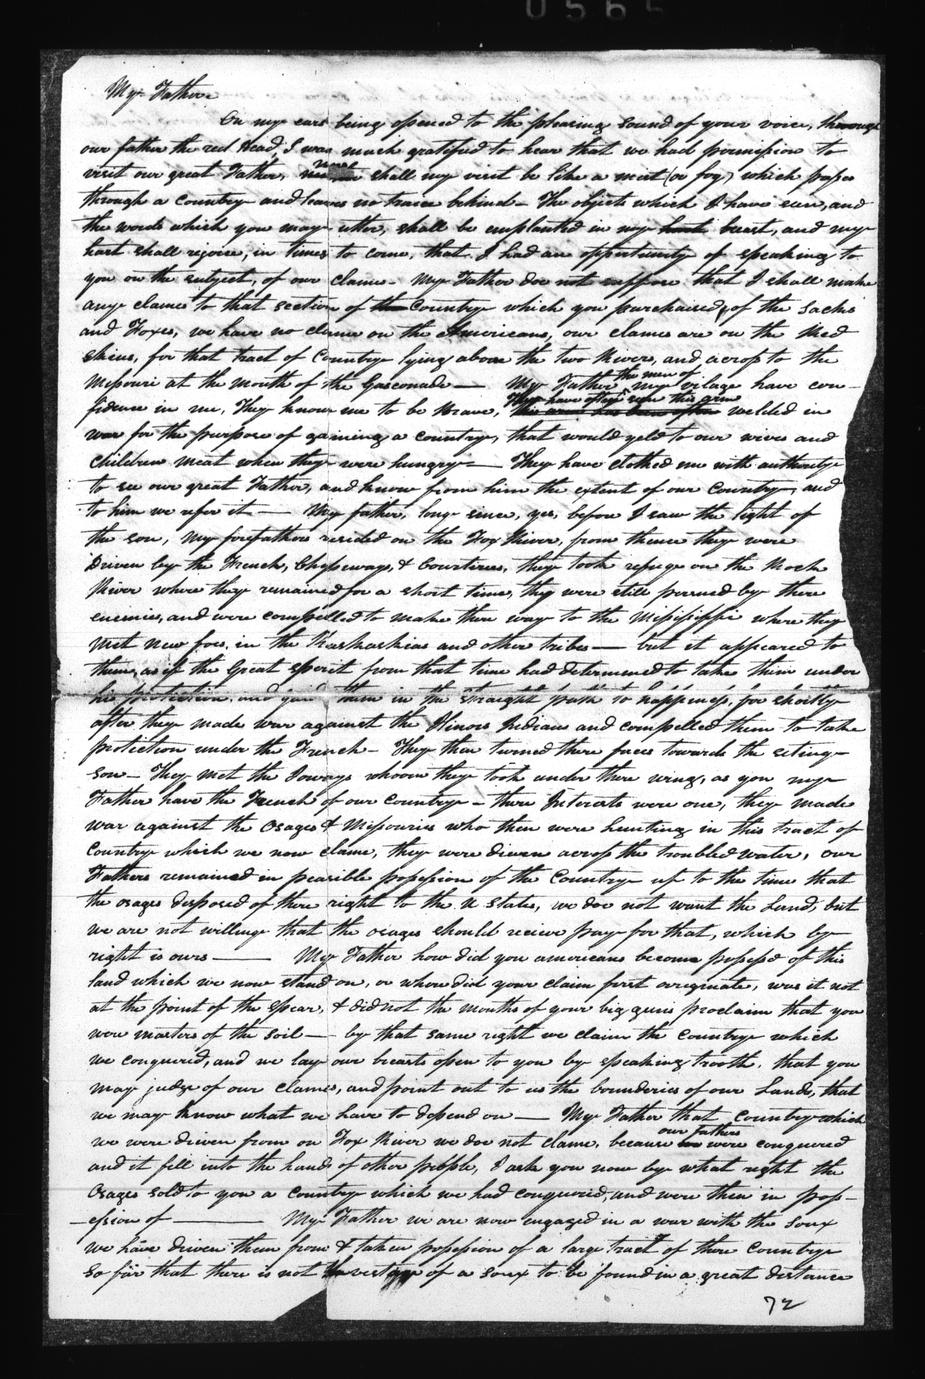 0565
My Father
On my ears being opened to the pleasing sound of your voice, through
our father the red Head I was much gratified to hear that we had permission to
visit our great Father, never shall my visit be like a mist (or fog) which passes
through a country and leaves no trace behind - The objects which I have seen, and
the words which you may utter, shall be implanted in my breast, and my
hart shall rejoise, in times to come, that I had an oppertunity of speaking to
you on the subject, of our claims. My Father doe not suppose that I shall make
any claime to that section of the Country which you purchaised, of the Sacks
and Foxes, we have no claime on the Americans, our claimes are on the Red
skins, for that tract of Country lying above the two Rivers, and across to the
Missouri at the mouth of the Gasconade — My Father the men of my vilage have con-
fidence in me, They know me to be Brave, They have often seen this arm welded in
war for the purpose of gaining a country, that would yeld to our wives and
children meat when they were hungry — They have clothed me with authority
to see our great Father, and know from him the extent of our Country, and
to him we refer it — My father, long since, yes, before I saw the light of
the son, my forefathers resided on the Fox River, from thence they were
Driven by the French, Chppeways, & Courtieres, they took refuge on the Rock
River where they remained for a short time, they were still persued by there
enemies, and were compelled to make there way to the Mississippi where they
met new foes, in the Kaskaskias and other tribes — but it appeared to
them, as if the Great Sperit from that time had determined to take them under
his protection, and them in the straight path to happiness, for shortly
after they made war against the Ilinois Indians and compelled them to take
protiction under the French - They then turned there faces towards the seting
son - They met the Ioways whoom they took under there wing, as you my
Father have the French of our Country - there Interests were one, they made
war against the Osages & Missouries who then were hunting in this tract of
Country which we now claime, they were driven across the troubled water, our
Fathers remained in peasible possession of the Country up to the time that
the osages disposed of there right to the U States, we doe not want the Land, but
we are not willinge that the osages should recieve pay for that, which by
right is ours — My Father how did you americans become possess'd of this
land which we now stand on, or when did your claim first originate, was it not
at the point of the spear, & did not the mouths of your big guns proclaim that you
were masters of the soil — by that same right we claim the Country which
we conquered, and we lay our brearts open to you by speaking trooth, that you
may judge of our claimes, and point out to us the bounderies of our Lands, that
we may know what we have to depend on — My Father that country which
we were driven from on Fox River we doe not clame, because our fathers were conquered
and it fell into the hands of other people, I ask you now by what right the
Osages sold to you a country which we had conquered, and were then in poss-
-ession of — My Father we are now engaged in a war with the Soux
we have driven them from & taken possession of a large tract of there Country
so far that there is not vestage of a soux to be found in a great distance
72